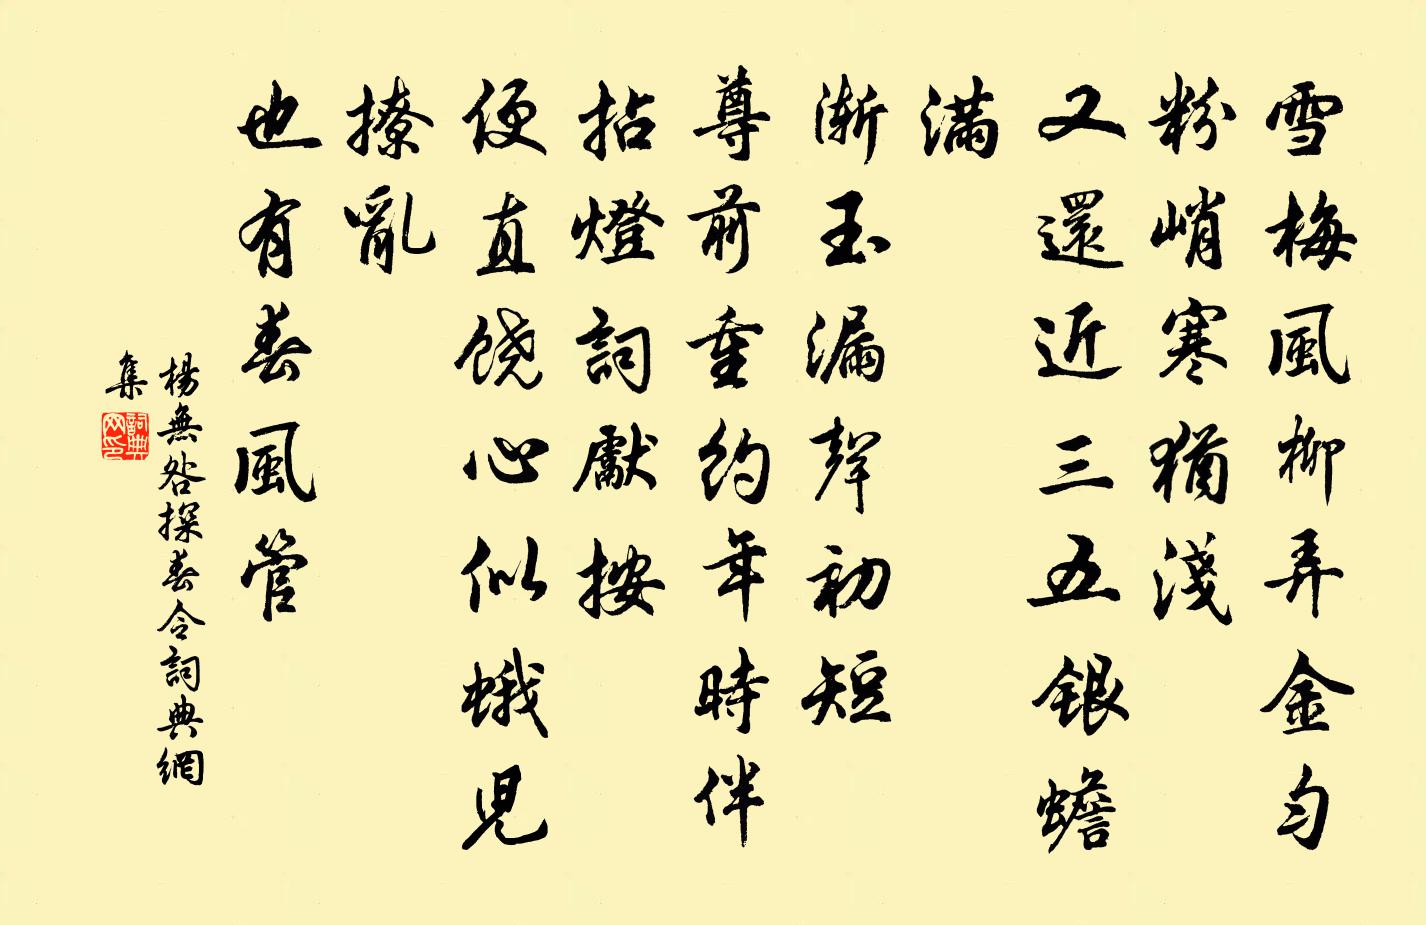 雪梅風柳弄金勻
粉峭寒猶淺
又還近三五銀蟾
滿
漸玉漏聲初短
尊前重約年時伴
拈燈詞獻按
便直饒心似蛾兒
撩亂
也有春風管
楊無咎探春令詞典網
集
詞典网印